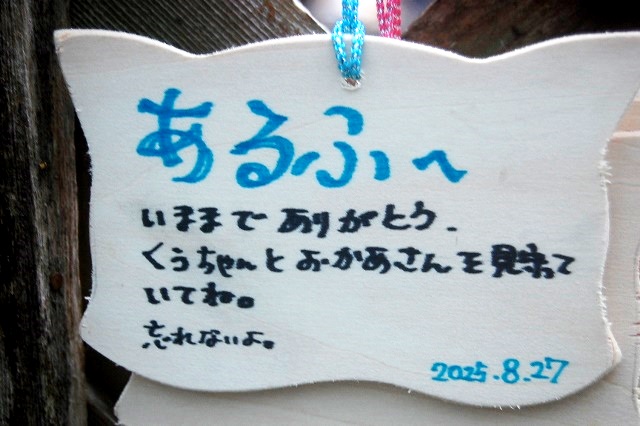 あるふへ
いままで ありがとう.
くぅちゃんと おかあさんを見守って
いてね。
忘れないよ。
2025.8.27